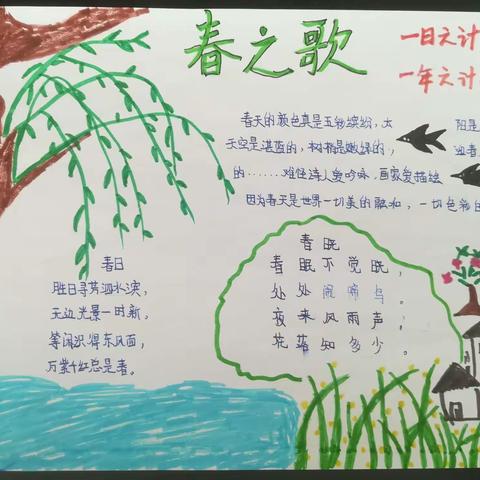 春之歌
一日之计
一年之计
春天的颜色真是五彩缤纷,太 阳是
天空是湛蓝的,树梢是嫩绿的, 迎春
的......难怪诗人爱吟咏,画家爱描绘
因为春天是世界一切美的融和,一切色彩的
春晓
春眠不觉晓,
处处闻啼鸟。
夜来风雨声,
花落知多少。
春日
胜日寻芳泗水滨,
无边光景一时新。
等闲识得东风面,
万紫千红总是春。